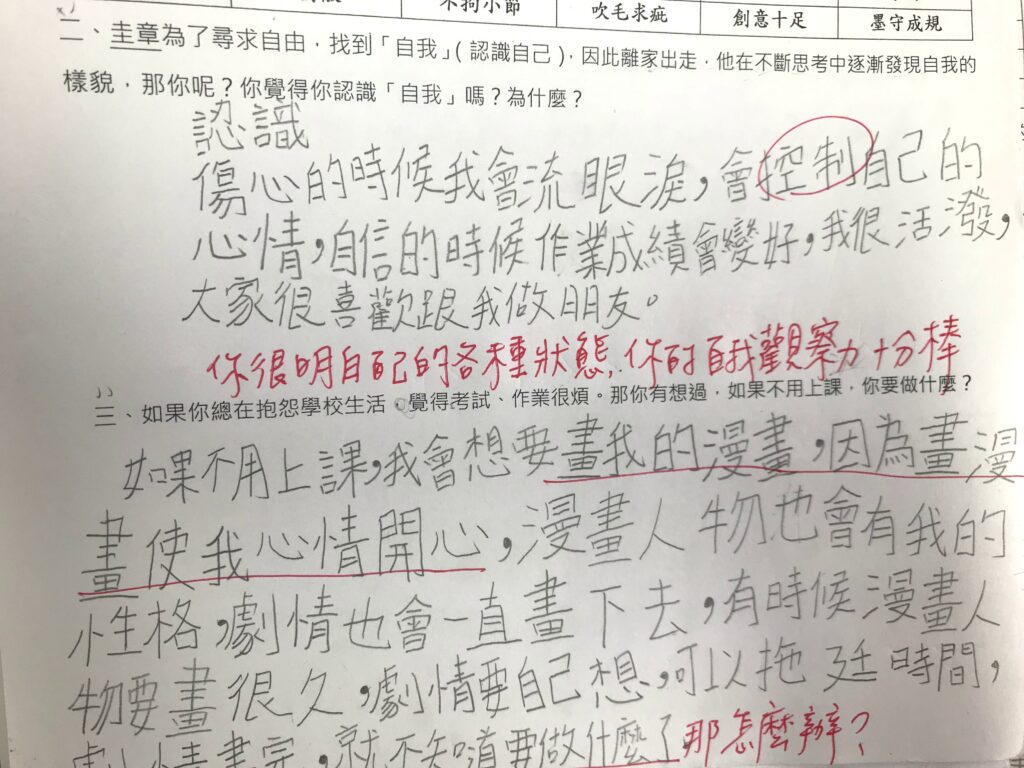 不拘小節 吹毛求疵 創意十足 墨守成規
二、圭章為了尋求自由，找到「自我」（認識自己），因此離家出走，他在不斷思考中逐漸發現自我的
樣貌，那你呢？你覺得你認識「自我」嗎？為什麼？
認識
傷心的時候我會流眼淚，會控制自己的
心情，自信的時候作業成績會變好，我很活潑，
大家很喜歡跟我做朋友。
你很明白自己的各種狀態，你的自我觀察力十分棒
三、如果你總在抱怨學校生活，覺得考試、作業很煩。那你有想過，如果不用上課，你要做什麼？
如果不用上課，我會想要畫我的漫畫，因為畫漫
畫使我心情開心，漫畫人物也會有我的
性格，劇情也會一直畫下去，有時候漫畫人
物要畫很久，劇情要自己想，可以拖延時間，
劇情畫完，就不知道要做什麼了 那怎麼辦？